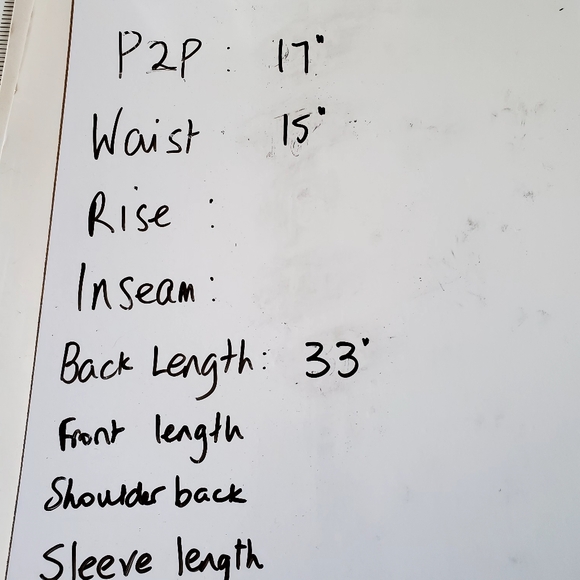 P2P : 17"
Waist 15"
Rise :
Inseam :
Back Length : 33"
Front length
Shoulder back
Sleeve length